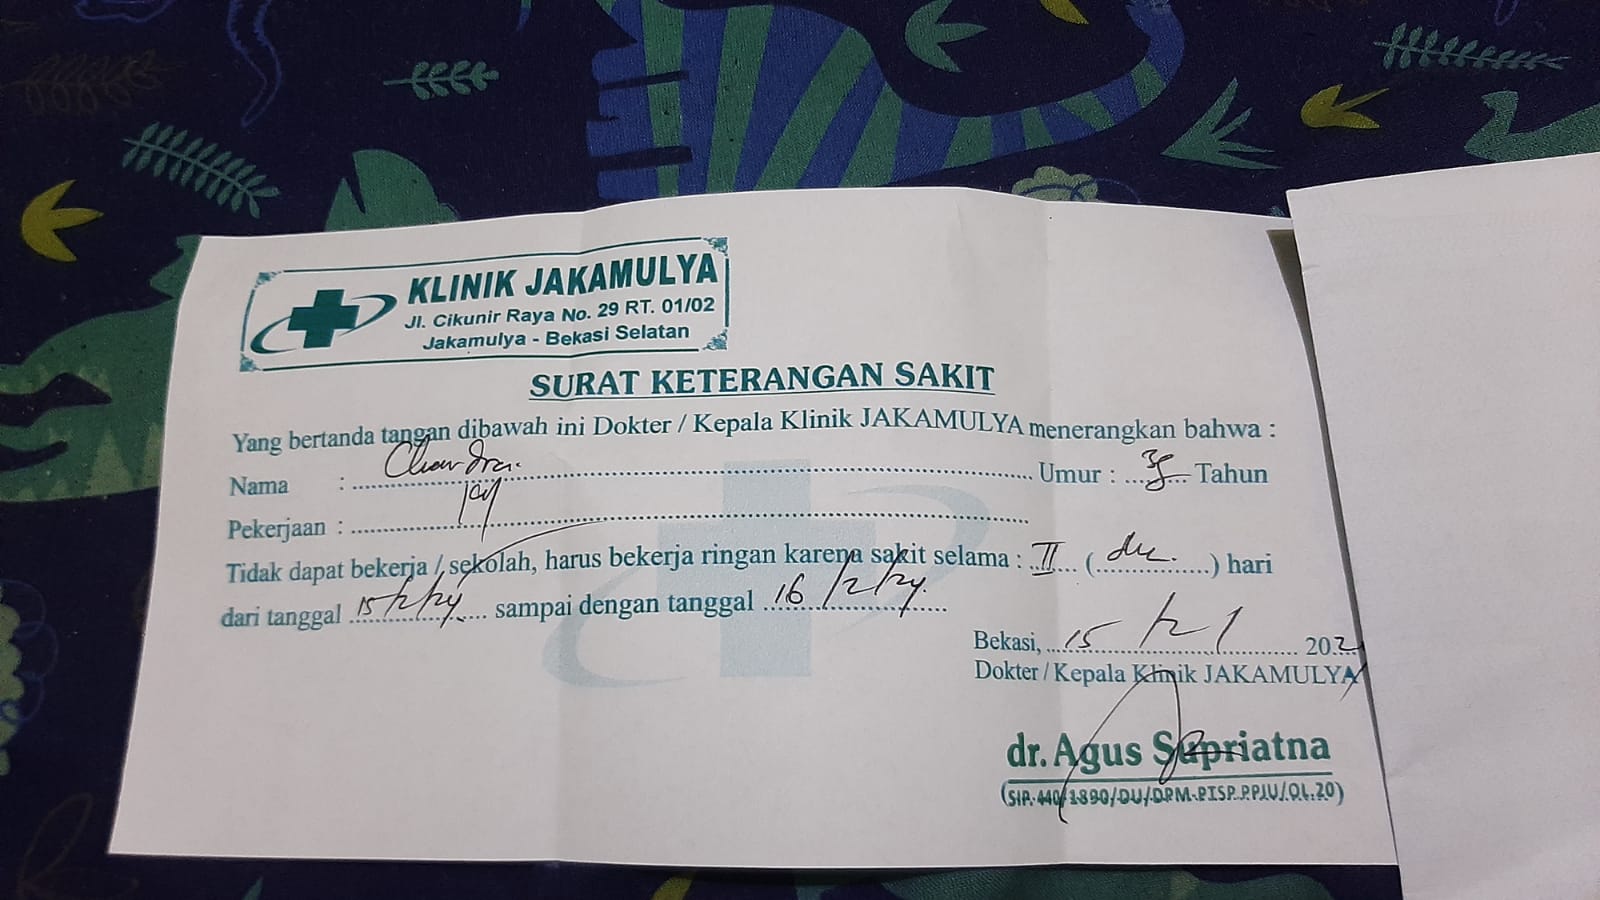 KLINIK JAKAMULYA
Jl. Cikunir Raya No. 29 RT. 01/02
Jakamulya - Bekasi Selatan
SURAT KETERANGAN SAKIT
Yang bertanda tangan dibawah ini Dokter / Kepala Klinik JAKAMULYA menerangkan bahwa :
Nama : Chandra. Umur : Tahun
Pekerjaan :
Tidak dapat bekerja / sekolah, harus bekerja ringan karena sakit selama : II (du.) hari
dari tanggal 15/2/24 sampai dengan tanggal 16/2/24.
Bekasi, 15/2/ 202
Dokter / Kepala Klinik JAKAMULYA
dr. Agus Supriatna
(SIP. 440/1890/DU/DPM-PTSP.PPJU/01.20)